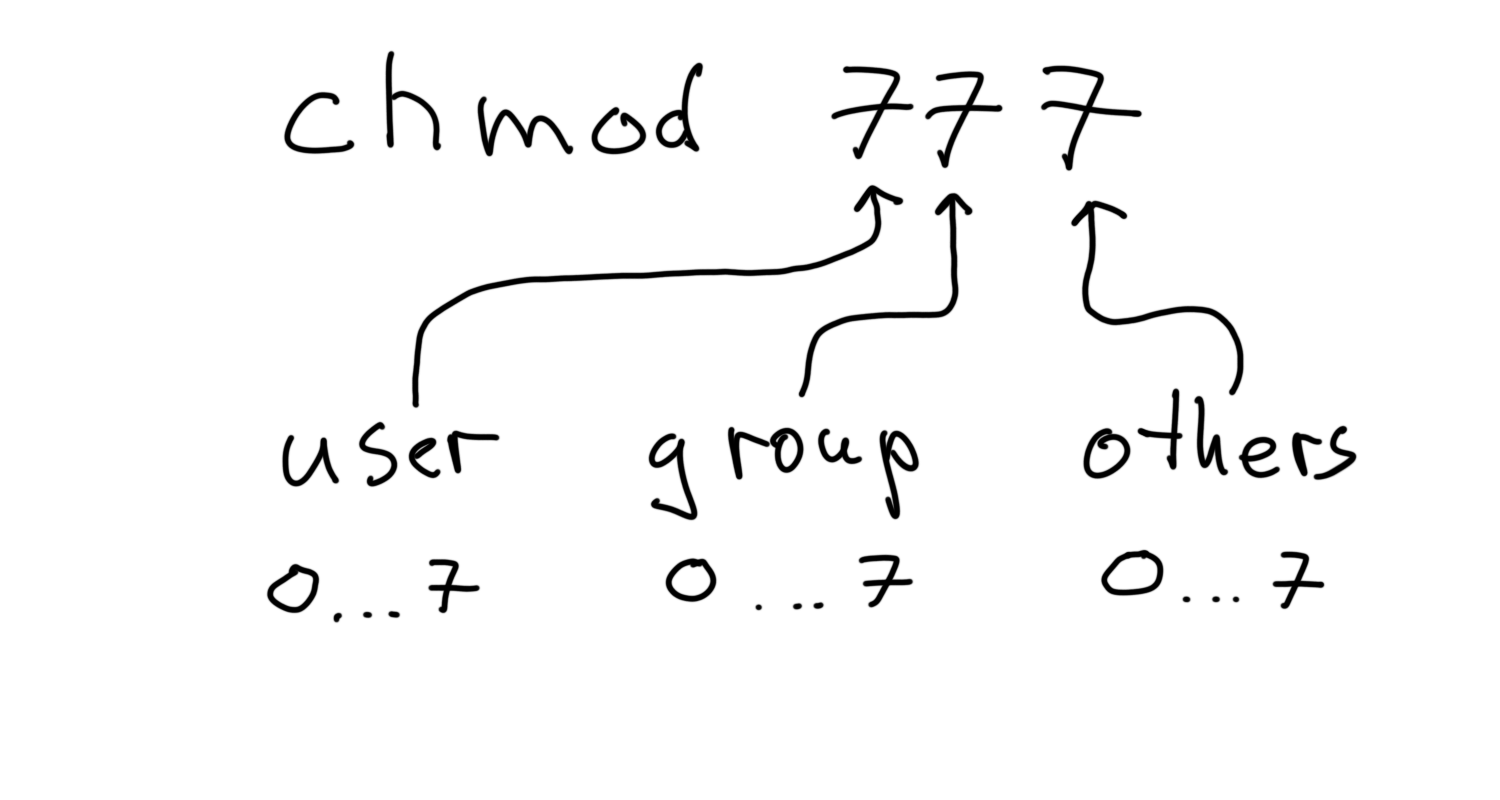 chmod 777
user group others
0...7 0...7 0...7